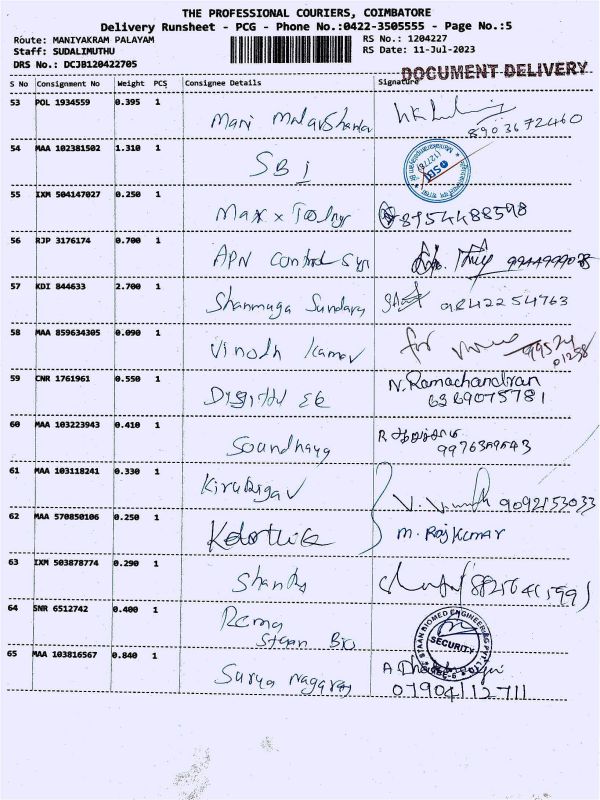 THE PROFESSIONAL COURIERS, COIMBATORE
Delivery Runsheet - PCG - Phone No.:0422-3505555 - Page No.:5
Route: MANIYAKRAM PALAYAM
RS No.: 1204227
Staff: SUDALIMUTHU
RS Date: 11-Jul-2023
DRS No.: DCJB120422705
DOCUMENT DELIVERY
S No Consignment No Weight PCS Consignee Details Signature
53 POL 1934559 0.395 1 Mani
8903672460
54 MAA 102381502 1.310 1 SBI
SBI
55 IXM 504147027 0.250 1 Max x 8954488598
56 RJP 3176174 0.700 1 APN Control Sys
57 KDI 844633 2.700 1 Shanmuga Sundara 9842254763
58 MAA 859634305 0.090 1 Vinodh Kumar for
99524
01258
59 CNR 1761961 0.550 1 N. Ramachandran
6369075781
60 MAA 103223943 0.410 1 Soundharya R
61 MAA 103118241 0.330 1 9092153033
62 MAA 570850106 0.250 1 M. Rajkumar
63 IXM 503878774 0.290 1
64 SNR 6512742 0.400 1 Rema
Staan Bio
STAAN BIOMED ENGINEERING PVT LTD
SECURITY
65 MAA 103816567 0.840 1 Surya Nagaraj A
07904112711